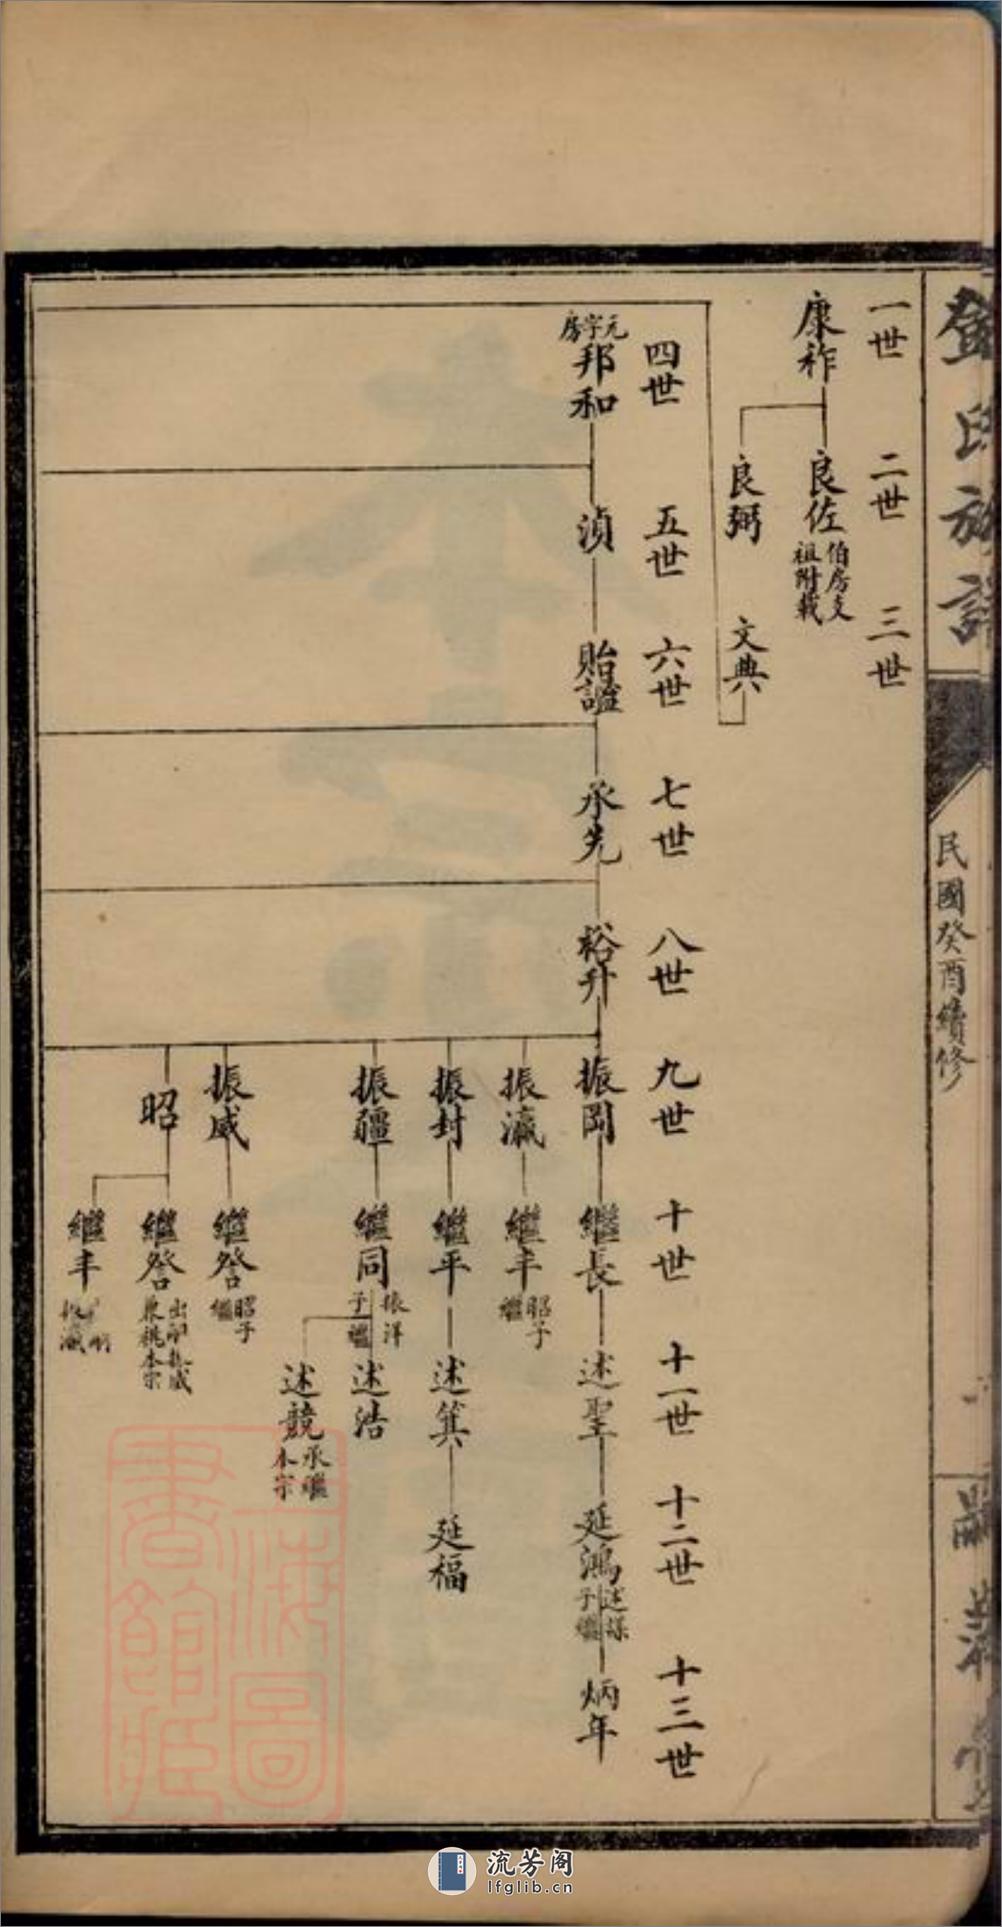 氏族譜
民國癸酉續修
一世
康祚
二世
良佐
伯房支
祖附載
良弼
三世
文典
四世
元字房
邦和
五世
湞
六世
貽謐
七世
承先
八世
裕升
九世
振岡
振瀛
振封
振疆
振威
昭
十世
繼長
繼丰
昭子
繼
繼平
繼同
振洋
子繼
繼詧
昭子
繼
繼詧
出嗣振威
兼祧本宗
繼丰
十一世
述聖
述箕
述浩
述競
承繼
本宗
十二世
延鴻
子繼
延福
十三世
炳年
上海圖
書館藏
流芳阁
lfglib.cn